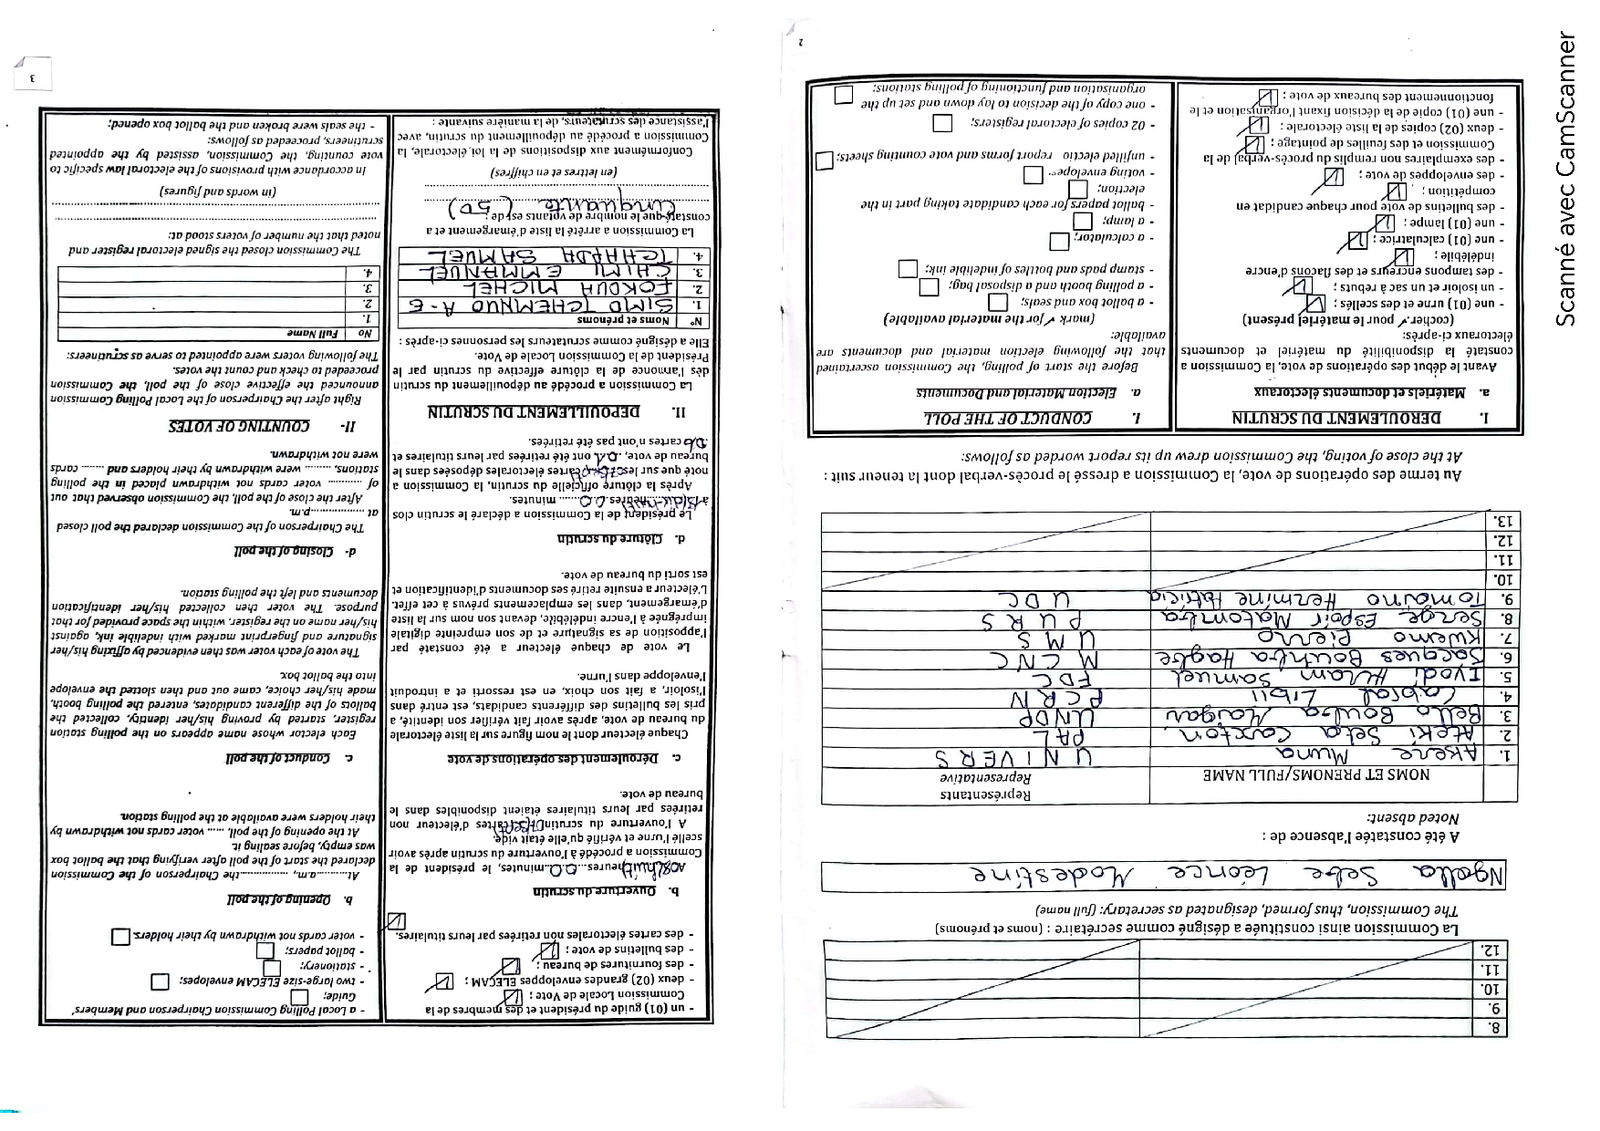 8.
9.
10.
11.
12.
La Commission ainsi constituée a désigné comme secrétaire : (noms et prénoms)
The Commission, thus formed, designated as secretary: (full name)
Ngalla Sebe Léonce Modestine
A été constatée l'absence de :
Noted absent:
NOMS ET PRENOMS/FULL NAME
Représentants
Representative
1. Akere Muna UNIVERS
2. Ateki Seta Caxton PAL
3. Bello Bouba Maigari UNDP
4. Cabral Libii PCRN
5. Iyodi Hiram Samuel FDC
6. Jacques Bouhba Hagbe MCNC
7. Kwemo Pierre UMS
8. Serge Espoir Matomba PURS
9. Tomaino Hermine Patricia UDC
10.
11.
12.
13.
Au terme des opérations de vote, la Commission a dressé le procès-verbal dont la teneur suit :
At the close of voting, the Commission drew up its report worded as follows:
I. DEROULEMENT DU SCRUTIN
a. Matériels et documents électoraux
Avant le début des opérations de vote, la Commission a
constaté la disponibilité du matériel et documents
électoraux ci-après:
(cocher ✓ pour le matériel présent)
- une (01) urne et des scellés ;
- un isoloir et un sac à rebuts ;
- des tampons encreurs et des flacons d'encre
indélébile ;
- une (01) calculatrice ;
- une (01) lampe ;
- des bulletins de vote pour chaque candidat en
compétition ;
- des enveloppes de vote ;
- des exemplaires non remplis du procès-verbal de la
Commission et des feuilles de pointage ;
- deux (02) copies de la liste électorale ;
- une (01) copie de la décision fixant l'organisation et le
fonctionnement des bureaux de vote ;
I. CONDUCT OF THE POLL
a. Election Material and Documents
Before the start of polling, the Commission ascertained
that the following election material and documents are
available:
(mark ✓ for the material available)
- a ballot box and seals;
- a polling booth and a disposal bag;
- stamp pads and bottles of indelible ink;
- a calculator;
- a lamp;
- ballot papers for each candidate taking part in the
election;
- voting envelopes;
- unfilled electio report forms and vote counting sheets;
- 02 copies of electoral registers;
- one copy of the decision to lay down and set up the
organisation and functioning of polling stations;
2
- un (01) guide du président et des membres de la
Commission Locale de Vote ;
- deux (02) grandes enveloppes ELECAM ;
- des fournitures de bureau ;
- des bulletins de vote ;
- des cartes électorales non retirées par leurs titulaires.
b. Ouverture du scrutin
A 08(huit) heures 00 minutes, le président de la
Commission a procédé à l'ouverture du scrutin après avoir
scellé l'urne et vérifié qu'elle était vide.
A l'ouverture du scrutin, cartes d'électeur non
retirées par leurs titulaires étaient disponibles dans le
bureau de vote.
c. Déroulement des opérations de vote
Chaque électeur dont le nom figure sur la liste électorale
du bureau de vote, après avoir fait vérifier son identité, a
pris les bulletins des différents candidats, est entré dans
l'isoloir, a fait son choix, en est ressorti et a introduit
l'enveloppe dans l'urne.
Le vote de chaque électeur a été constaté par
l'apposition de sa signature et de son empreinte digitale
imprégnée à l'encre indélébile, devant son nom sur la liste
d'émargement, dans les emplacements prévus à cet effet.
L'électeur a ensuite retiré ses documents d'identification et
est sorti du bureau de vote.
d. Clôture du scrutin
Le président de la Commission a déclaré le scrutin clos
à 18(dix-huit) heures 00 minutes.
Après la clôture officielle du scrutin, la Commission a
noté que sur les cartes électorales déposées dans le
bureau de vote, ont été retirées par leurs titulaires et
cartes n'ont pas été retirées.
II. DEPOUILLEMENT DU SCRUTIN
La Commission a procédé au dépouillement du scrutin
dès l'annonce de la clôture effective du scrutin par le
Président de la Commission Locale de Vote.
Elle a désigné comme scrutateurs les personnes ci-après :
N° Noms et prénoms
1. SIMO TCHEMNUO A-E
2. FOKOUA MICHEL
3. CHIMI EMMANUEL
4. TCHAPDA SAMUEL
La Commission a arrêté la liste d'émargement et a
constaté que le nombre de votants est de :
Cinquante (50)
(en lettres et en chiffres)
Conformément aux dispositions de la loi électorale, la
Commission a procédé au dépouillement du scrutin, avec
l'assistance des scrutateurs, de la manière suivante :
- a Local Polling Commission Chairperson and Members'
Guide;
- two large-size ELECAM envelopes;
- stationery;
- ballot papers;
- voter cards not withdrawn by their holders.
b. Opening of the poll
At..........a.m, ..............the Chairperson of the Commission
declared the start of the poll after verifying that the ballot box
was empty, before sealing it.
At the opening of the poll, ...... voter cards not withdrawn by
their holders were available at the polling station.
c. Conduct of the poll
Each elector whose name appears on the polling station
register, started by proving his/her identity, collected the
ballots of the different candidates, entered the polling booth,
made his/her choice, came out and then slotted the envelope
into the ballot box.
The vote of each voter was then evidenced by affixing his/her
signature and fingerprint marked with indelible ink, against
his/her name on the register, within the space provided for that
purpose. The voter then collected his/her identification
documents and left the polling station.
d- Closing of the poll
The Chairperson of the Commission declared the poll closed
at ..................p.m.
After the close of the poll, the Commission observed that out
of ............ voter cards not withdrawn placed in the polling
stations, ......... were withdrawn by their holders and ....... cards
were not withdrawn.
II- COUNTING OF VOTES
Right after the Chairperson of the Local Polling Commission
announced the effective close of the poll, the Commission
proceeded to check and count the votes.
The following voters were appointed to serve as scrutineers:
No Full Name
1.
2.
3.
4.
The Commission closed the signed electoral register and
noted that the number of voters stood at:
(in words and figures)
In accordance with provisions of the electoral law specific to
vote counting, the Commission, assisted by the appointed
scrutineers, proceeded as follows:
- the seals were broken and the ballot box opened;
3
Scanné avec CamScanner